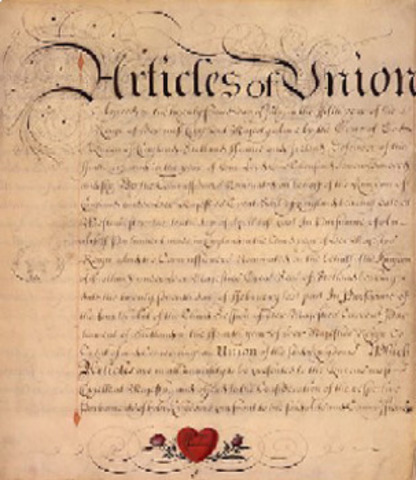 Articles of Union
the twenty second day of July in the Fifth year of the
Reign of Her most Majesty by the Grace of God
Queen of England Scotland France and Ireland Defender of the
in the year of One Thousand Seven hundred
and Six By the Commissioners Nominated on behalf of the Kingdom of
England under Her Majesties Great Seal of England bearing date at
Westminster the tenth day of Aprill last past In Pursuance of
of Parliament made in England in the third year of Her Majesties
Reign and the Commissioners Nominated on the behalf of the Kingdom
of Scotland under Her Majesties Great Seal of Scotland bearing
date the twenty Seventh day of February last past In Pursuance of
the fourth Act of the third Session of Her Majesties Current Parlia-
ment of Scotland in the fourth year of Her Majesties Reign to
Treat of and Concerning an Union of the said Kingdoms Which
Articles are in all humility to be presented to the Queens most
Excellent Majesty and to the Consideration of the respective
Parliaments of both Kingdoms pursuant to the said